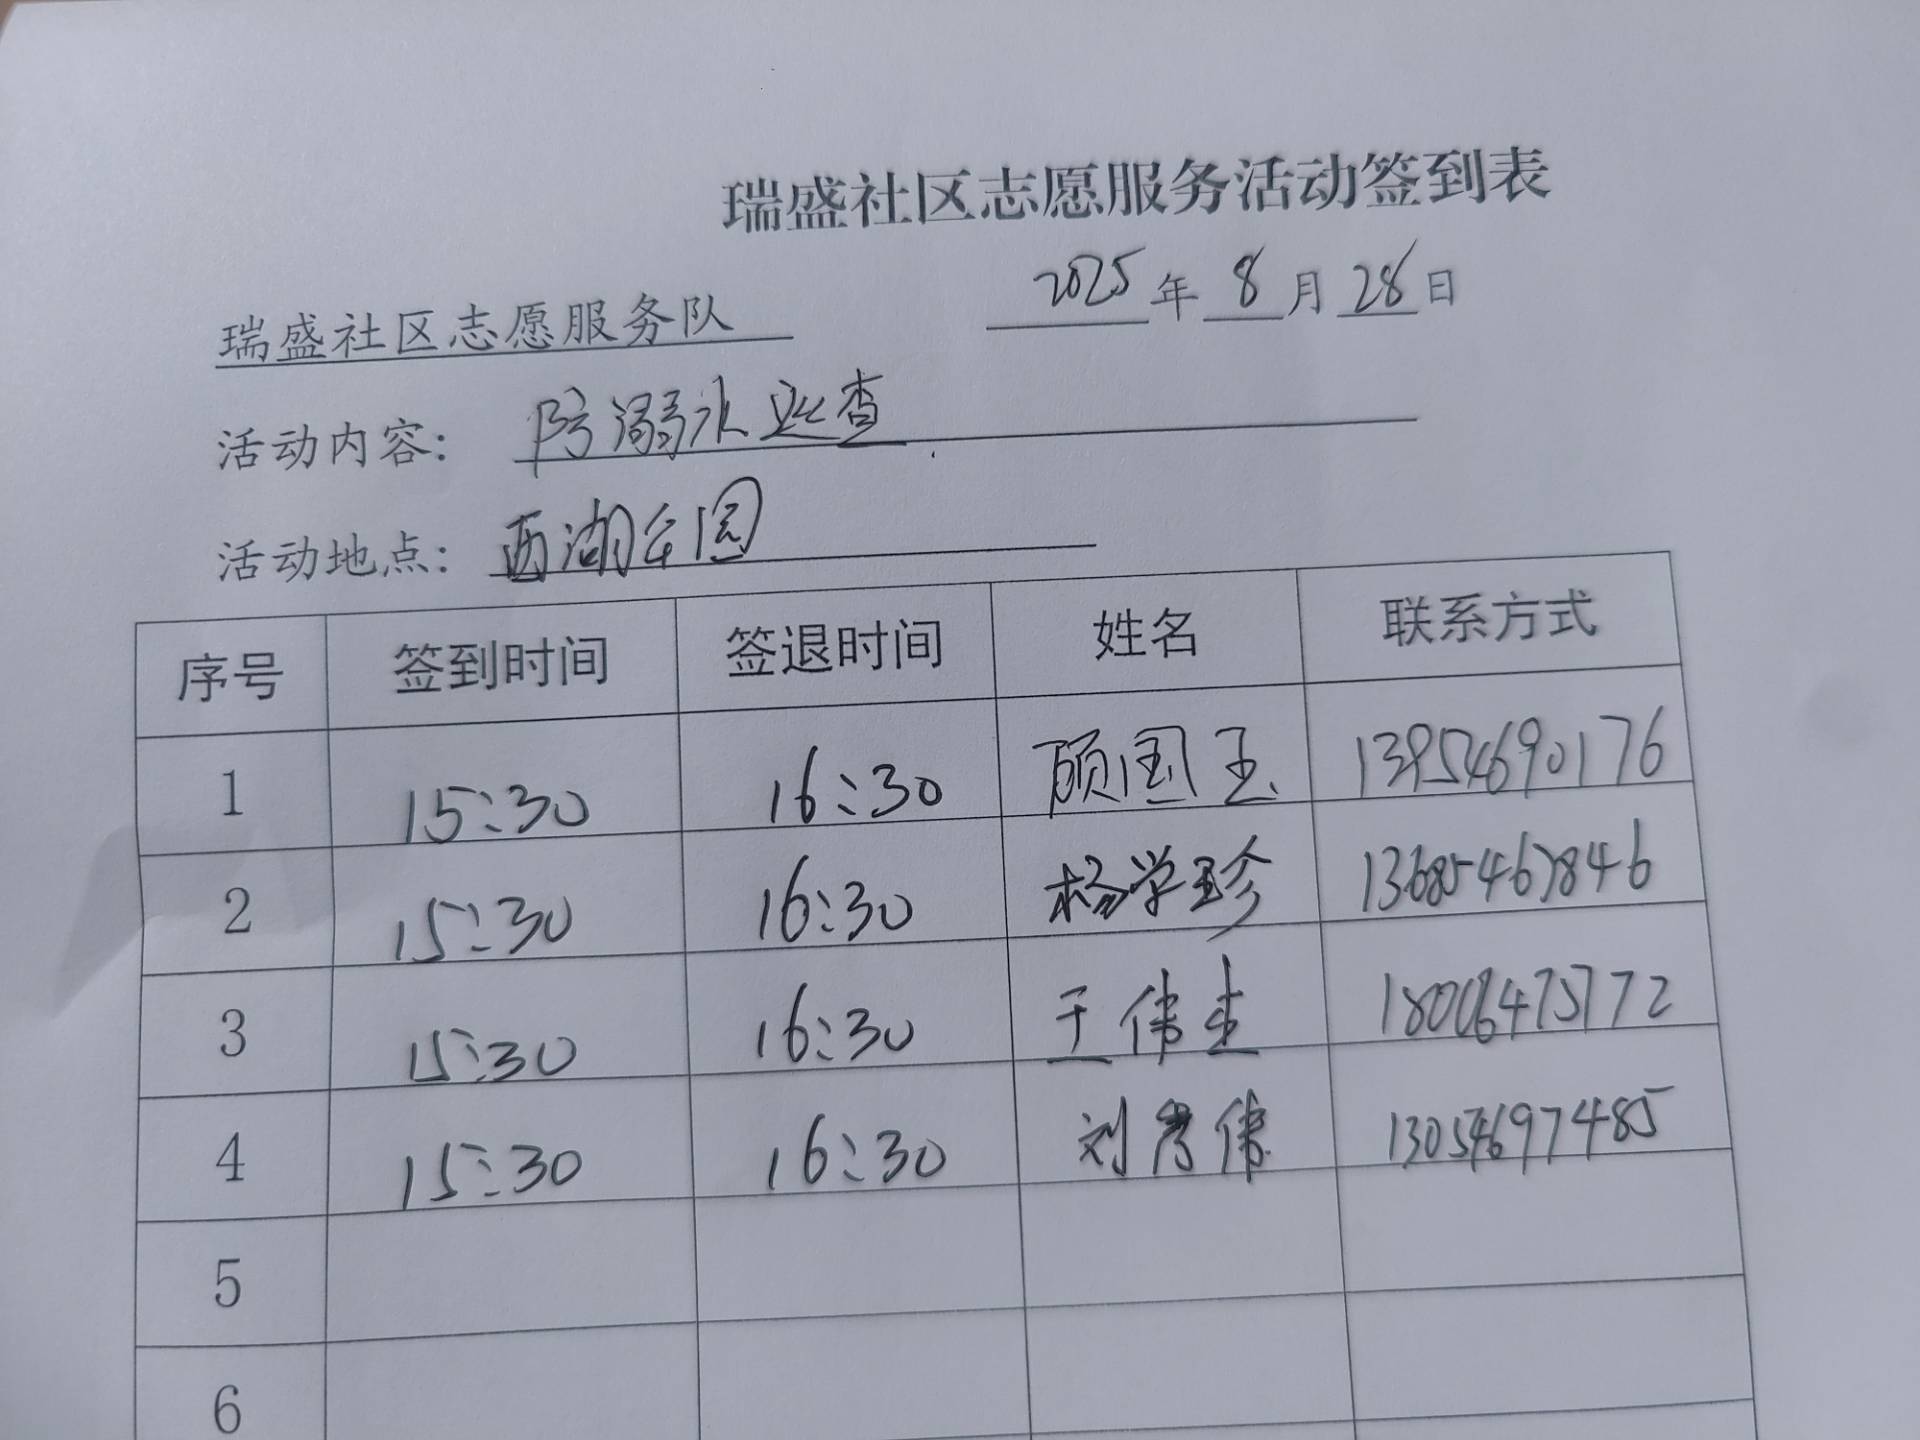 瑞盛社区志愿服务活动签到表
瑞盛社区志愿服务队 2025年8月28日
活动内容: 防溺水巡查
活动地点: 西湖公园
序号 签到时间 签退时间 姓名 联系方式
1 15:30 16:30 顾国玉 13954690176
2 15:30 16:30 杨学珍 13685467846
3 15:30 16:30 王伟生 18006475772
4 15:30 16:30 刘孝伟 13054697485
5
6